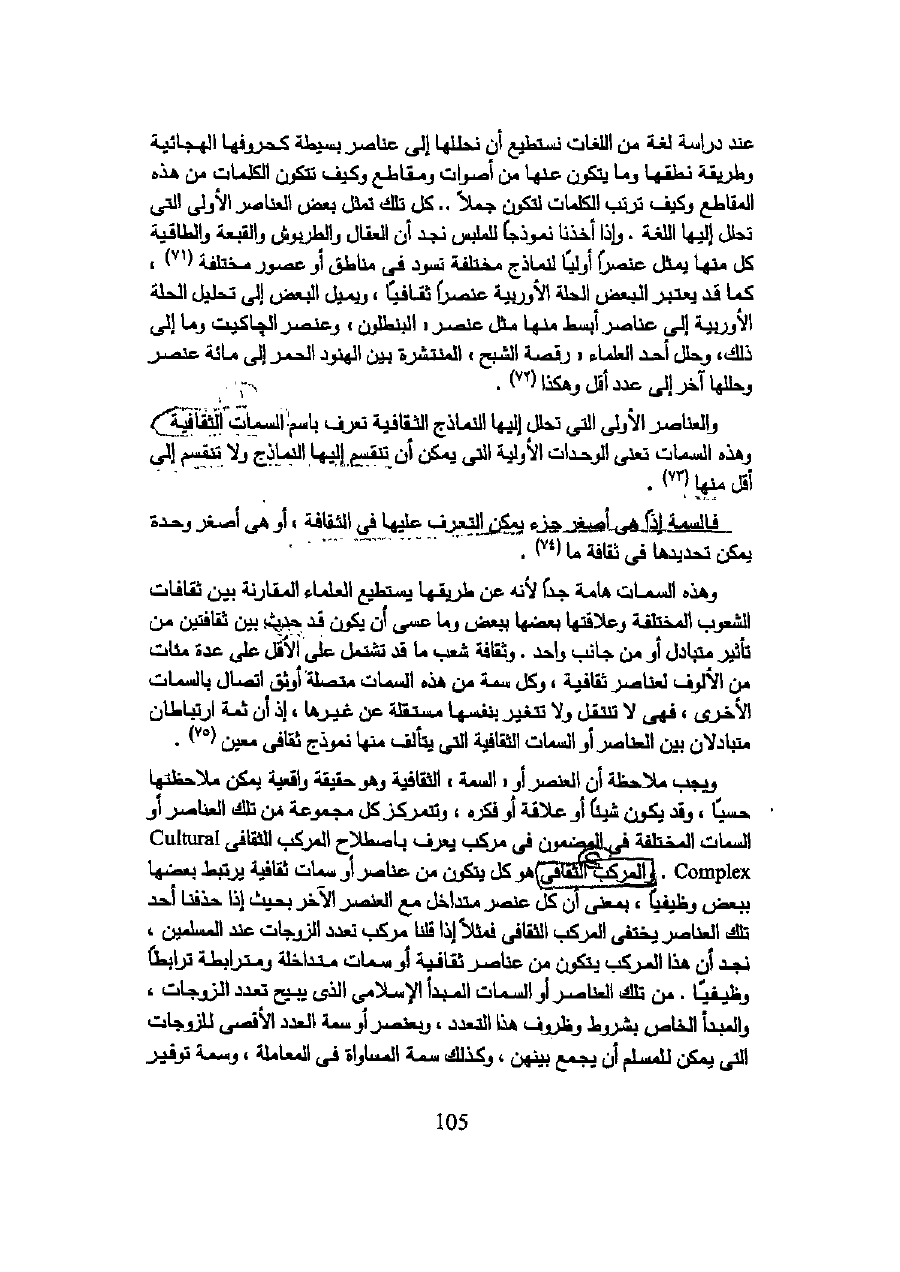 عند دراسة لغة من اللغات نستطيع أن نحللها إلى عناصر بسيطة كحروفها الهجائية
وطريقة نطقها وما يتكون عنها من أصوات ومقاطع وكيف تتكون الكلمات من هذه
المقاطع وكيف ترتب الكلمات لتكون جملاً .. كل تلك تمثل بعض العناصر الأولى التى
تحلل إليها اللغة . وإذا أخذنا نموذجاً للملبس نجد أن العقال والطربوش والقبعة والطاقية
كل منها يمثل عنصراً أولياً لنماذج مختلفة تسود فى مناطق أو عصور مختلفة (٧١) ،
كما قد يعتبر البعض الحلة الأوربية عنصراً ثقافياً ، ويميل البعض إلى تحليل الحلة
الأوربية إلى عناصر أبسط منها مثل عنصر « البنطلون » وعنصر الچاكيت وما إلى
ذلك، وحلل أحد العلماء « رقصة الشبح » المنتشرة بين الهنود الحمر إلى مائة عنصر
وحللها آخر إلى عدد أقل وهكذا (٧٢) .
والعناصر الأولى التى تحلل إليها النماذج الثقافية تعرف باسم السمات الثقافية
وهذه السمات تعنى الوحدات الأولية التى يمكن أن تنقسم إليها النماذج ولا تنقسم إلى
أقل منها (٧٣) .
فالسمة إذاً هى أصغر جزء يمكن التعرف عليها فى الثقافة ، أو هى أصغر وحدة
يمكن تحديدها فى ثقافة ما (٧٤) .
وهذه السمات هامة جداً لأنه عن طريقها يستطيع العلماء المقارنة بين ثقافات
الشعوب المختلفة وعلاقتها بعضها ببعض وما عسى أن يكون قد حدث بين ثقافتين من
تأثير متبادل أو من جانب واحد . وثقافة شعب ما قد تشتمل على الأقل على عدة مئات
من الألوف لعناصر ثقافية ، وكل سمة من هذه السمات متصلة أوثق اتصال بالسمات
الأخرى ، فهى لا تنتقل ولا تتغير بنفسها مستقلة عن غيرها ، إذ أن ثمة ارتباطان
متبادلان بين العناصر أو السمات الثقافية التى يتألف منها نموذج ثقافى معين (٧٥) .
ويجب ملاحظة أن العنصر أو « السمة » الثقافية وهو حقيقة واقعية يمكن ملاحظتها
حسياً ، وقد يكون شيئاً أو علاقة أو فكره ، وتتمركز كل مجموعة من تلك العناصر أو
السمات المختلفة فى المضمون فى مركب يعرف باصطلاح المركب الثقافى Cultural
Complex . والمركب الثقافى هو كل يتكون من عناصر أو سمات ثقافية يرتبط بعضها
ببعض وظيفياً ، بمعنى أن كل عنصر متداخل مع العنصر الآخر بحيث إذا حذفنا أحد
تلك العناصر يختفى المركب الثقافى فمثلاً إذا قلنا مركب تعدد الزوجات عند المسلمين ،
نجد أن هذا المركب يتكون من عناصر ثقافية أو سمات متداخلة ومترابطة ترابطاً
وظيفياً . من تلك العناصر أو السمات المبدأ الإسلامى الذى يبيح تعدد الزوجات ،
والمبدأ الخاص بشروط وظروف هذا التعدد ، وبعنصر أو سمة العدد الأقصى للزوجات
التى يمكن للمسلم أن يجمع بينهن ، وكذلك سمة المساواة فى المعاملة ، وسمة توفير
105